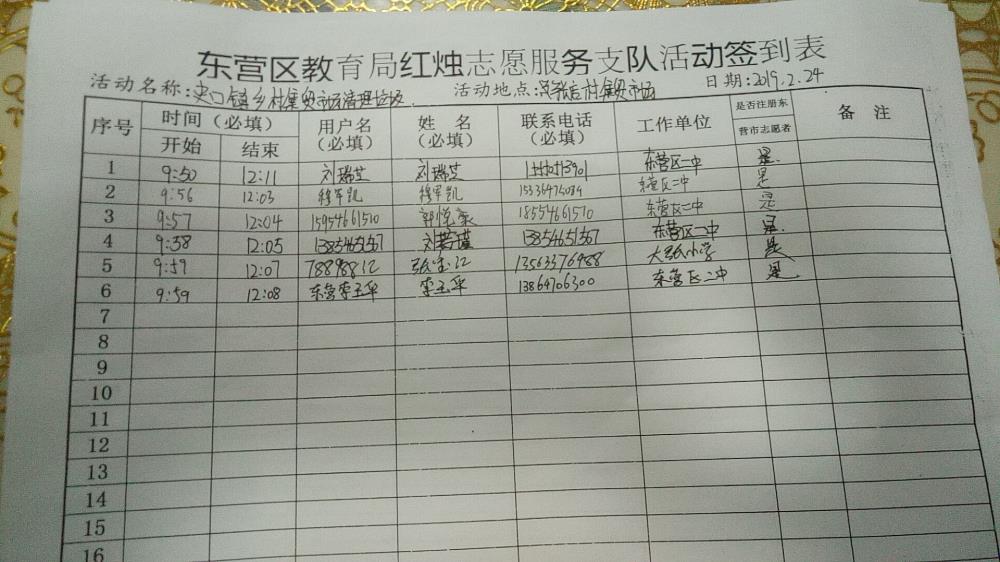 东营区教育局红烛志愿服务支队活动签到表
活动名称:史口镇乡村集贸市场清理垃圾 活动地点: 村集贸市场 日期:2019.2.24
序号 时间(必填) 开始 结束 用户名(必填) 姓名(必填) 联系电话(必填) 工作单位 是否注册东营市志愿者 备注
1 9:50 12:11 刘瑞芝 刘瑞芝 东营区一中 是
2 9:56 12:03 穆军凯 穆军凯 东营区二中 是
3 9:57 12:04 15954661510 东营区二中 是
4 9:58 12:05 13854651567 刘若瑾 13854651567 东营区一中 是
5 9:59 12:07 78898812 13563376988 小学 是
6 9:59 12:08 东营李玉华 李玉华 13864706300 东营区二中 是
7
8
9
10
11
12
13
14
15
16